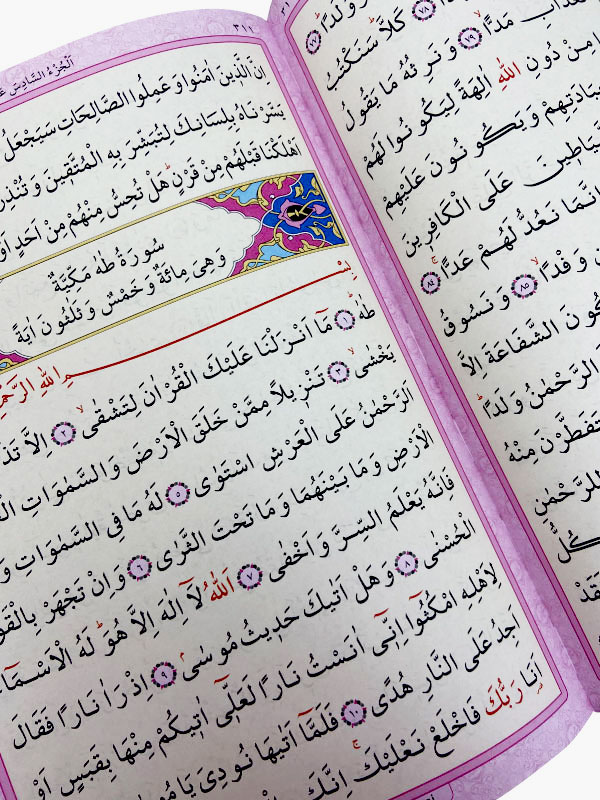 وَلَدًا ﴿٧٧﴾
﴿٧٨﴾ كَلَّا سَنَكْتُبُ
مَدًّا ﴿٧٩﴾ وَنَرِثُهُ مَا يَقُولُ
مِنْ دُونِ اللّٰهِ اٰلِهَةً لِيَكُونُوا لَهُمْ
وَيَكُونُونَ عَلَيْهِمْ
عَلَى الْكَافِرِينَ
اِنَّمَا نَعُدُّ لَهُمْ عَدًّا ﴿٨٤﴾
وَفْدًا ﴿٨٥﴾ وَنَسُوقُ
الشَّفَاعَةَ اِلَّا
الرَّحْمٰنُ وَلَدًا
مِنْهُ
لِلرَّحْمٰنِ
كُلُّ
٣١١ اَلْجُزْءُ السَّادِسَ
اِنَّ الَّذِينَ اٰمَنُوا وَعَمِلُوا الصَّالِحَاتِ سَيَجْعَلُ
يَسَّرْنَاهُ بِلِسَانِكَ لِتُبَشِّرَ بِهِ الْمُتَّقِينَ وَتُنْذِرَ
اَهْلَكْنَا قَبْلَهُمْ مِنْ قَرْنٍ هَلْ تُحِسُّ مِنْهُمْ مِنْ اَحَدٍ اَوْ
سُورَةُ طٰهٰ مَكِّيَّةٌ
وَهِىَ مِائَةٌ وَخَمْسٌ وَثَلٰثُونَ اٰيَةً
بِسْمِ اللّٰهِ
طٰهٰ ﴿١﴾ مَا اَنْزَلْنَا عَلَيْكَ الْقُرْاٰنَ لِتَشْقٰى ﴿٢﴾ اِلَّا
يَخْشٰى ﴿٣﴾ تَنْزِيلًا مِمَّنْ خَلَقَ الْاَرْضَ وَالسَّمٰوَاتِ
اَلرَّحْمٰنُ عَلَى الْعَرْشِ اسْتَوٰى ﴿٥﴾ لَهُ مَا فِى السَّمٰوَاتِ
الْاَرْضِ وَمَا بَيْنَهُمَا وَمَا تَحْتَ الثَّرٰى ﴿٦﴾ وَاِنْ تَجْهَرْ
فَاِنَّهُ يَعْلَمُ السِّرَّ وَاَخْفٰى ﴿٧﴾ اَللّٰهُ لَا اِلٰهَ اِلَّا هُوَ لَهُ
الْحُسْنٰى ﴿٨﴾ وَهَلْ اَتٰيكَ حَدِيثُ مُوسٰى ﴿٩﴾ اِذْ رَاٰ نَارًا فَقَالَ
لِاَهْلِهِ امْكُثُوا اِنِّى اٰنَسْتُ نَارًا لَعَلِّى اٰتِيكُمْ مِنْهَا بِقَبَسٍ اَوْ
اَجِدُ عَلَى النَّارِ هُدًى ﴿١٠﴾ فَلَمَّا اَتٰيهَا نُودِىَ
اَنَا رَبُّكَ فَاخْلَعْ نَعْلَيْكَ اِنَّكَ